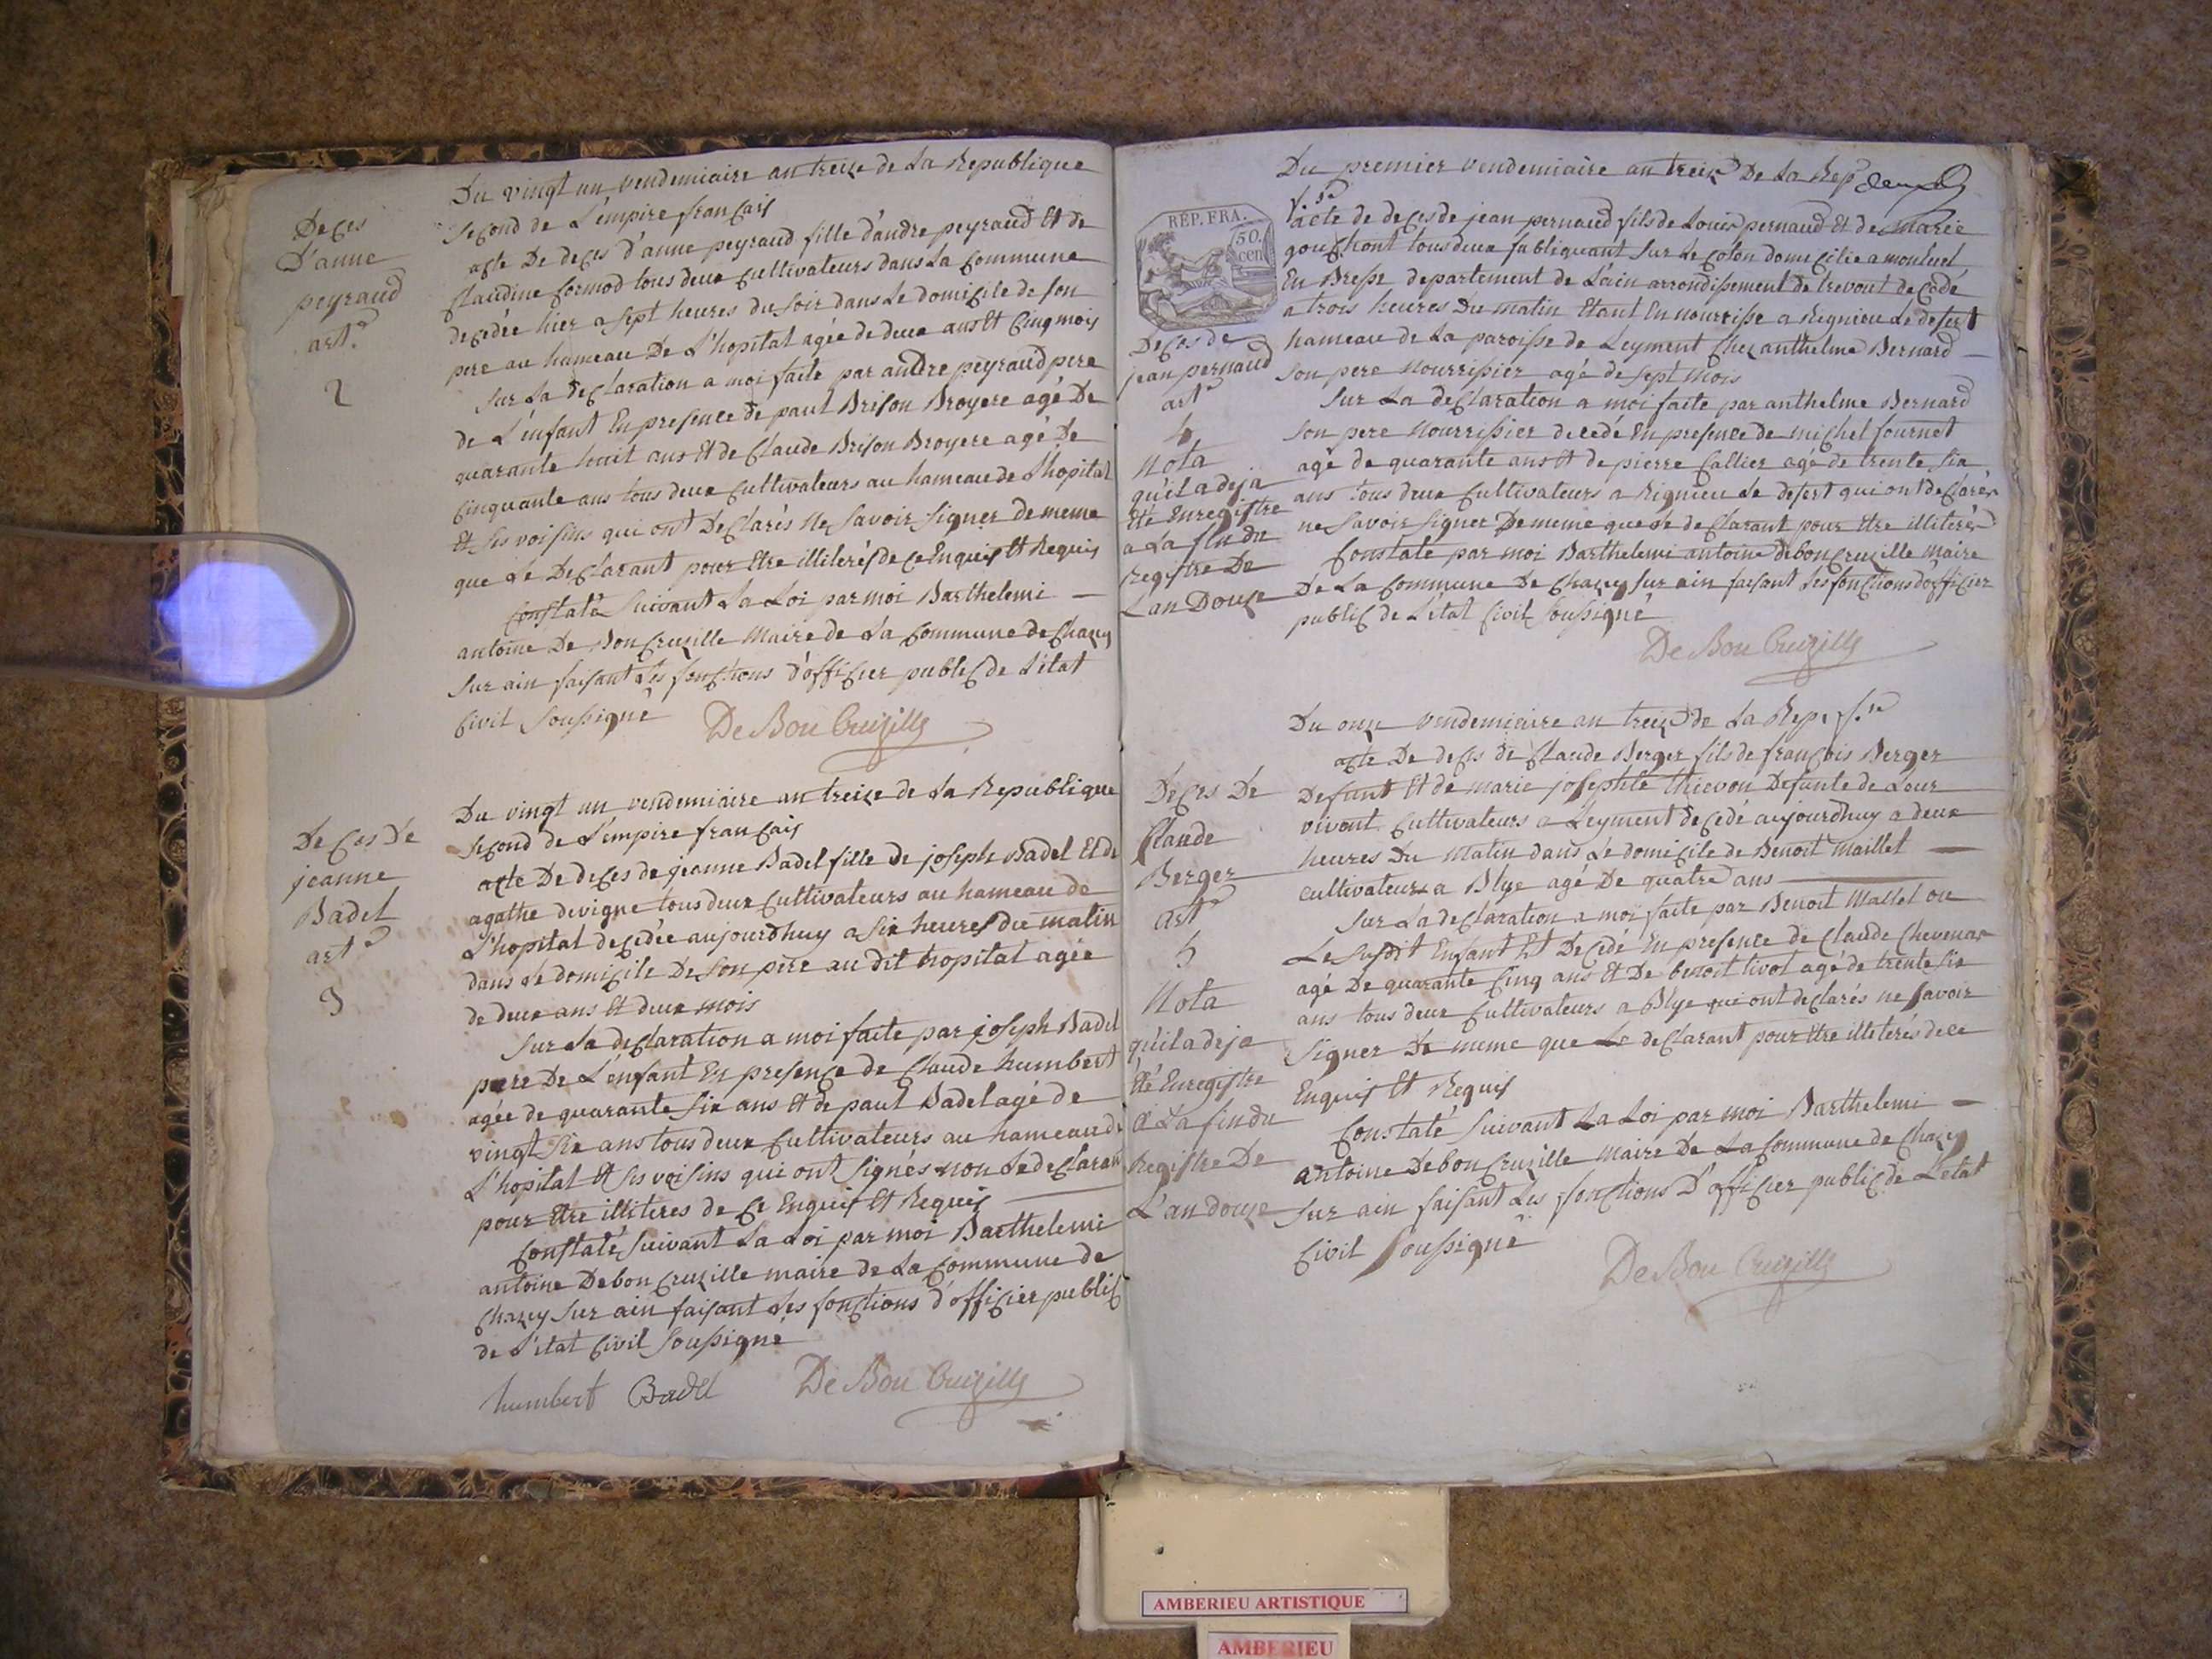 Deces
D'anne
peyraud
art.e
2
Du vingt un vendemiaire an treize de La Republique
second de L'empire francais
acte De deces d'anne peyraud fille d'andre peyraud Et de
Claudine Cormod tous deux Cultivateurs dans La Commune
decedée hier a sept heures du soir dans Le domicile de son
pere au hameau De L'hopital agée de deux ans Et Cinq mois
Sur La declaration a moi faite par andre peyraud pere
de L'enfant En presence de paul Brison Broyere agé De
quarante huit ans Et de Claude Brison Broyere agé De
Cinquante ans tous deux Cultivateurs au hameau de L'hopital
Et ses voisins qui ont Declarés Ne Savoir signer de meme
que Le Declarant pour Etre illiterés de ce Enquis Et Requis
Constaté Suivant La Loi par moi Barthelemi
antoine De Bon Cruzille Maire de La Commune de Chazey
sur ain faisant Les fonctions d'officier public de L'etat
Civil soussigné
De Bon Cruzille
Deces De
jeanne
Badel
art.e
3
Du vingt un vendemiaire an treize de La Republique
second de L'empire francais
acte De deces de jeanne Badel fille de joseph Badel Et de
agathe devigne tous deux Cultivateurs au hameau de
L'hopital decedée aujourdhuy a six heures du matin
dans Le domicile De son pere au dit hopital agée
de deux ans Et deux mois
Sur La declaration a moi faite par joseph Badel
pere De L'enfant En presence de Claude humbert
agée de quarante six ans Et de paul Badel agé de
vingt six ans tous deux Cultivateurs au hameau de
L'hopital Et ses voisins qui ont signés non Le declarant
pour Etre illiteres de ce Enquis Et Requis
Constaté Suivant La Loi par moi Barthelemi
antoine Debon Cruzille maire de La Commune de
Chazey sur ain faisant Les fonctions d'officier public
de L'etat Civil soussigné
humbert Badel De Bon Cruzille
REP. FRA.
50.
cen
Deces de
jean pernaud
art.e
4
Nota
qu'il a deja
Eté Enregistre
a La fin du
Registre De
L'an Douze
Du premier vendemiaire an treize De La Rep
f.se
acte de deces de jean pernaud fils de Louis pernaud Et de Marie
gouchont tous deux fabliquant sur Le Coton domicilie a monluel
En Bresse departement de L'ain arrondissement de trevout decedé
a trois heures Du matin Etant En nourrisse a Rignieu Le desert
hameau de La paroisse de Leyment Chez anthelme Bernard
son pere Nourrissier agé de sept mois
Sur La declaration a moi faite par anthelme Bernard
son pere Nourrissier decedé En presence de michel fournet
agé de quarante ans Et de pierre Callier agé de trente six
ans tous deux Cultivateurs a Rignieu Le desert qui ont declarés
ne Savoir signer De meme que Le declarant pour Etre illiterés
Constaté par moi Barthelemi antoine debon Cruzille Maire
De La Commune De Chazey sur ain faisant Les fonctions d'officier
public de L'etat Civil soussigné
De Bon Cruzille
Deces De
Claude
Berger
art.e
5
Nota
qu'il a deja
Eté Enregistre
a La fin du
Registre De
L'an douze
Du onze vendemiaire an treize de La Rep. f.se
acte De deces de Claude Berger fils de francois Berger
Defunt Et de marie josephte thievon Defunte de Leur
vivant Cultivateurs a Leyment decedé aujourdhuy a deux
heures Du Matin dans Le domicile de Benoit Maillet
cultivateurs a Blye agé De quatre ans
Sur La declaration a moi faite par Benoit Mallet ou
Le susdit Enfant Est Decedé En presence de Claude Chevenar
agé De quarante Cinq ans Et De benoit tivot agé de trente six
ans tous deux Cultivateurs a Blye qui ont declarés ne savoir
signer De meme que Le declarant pour Etre illiterés de ce
Enquis Et Requis
Constaté Suivant La Loi par moi Barthelemi
antoine Debon Cruzille Maire De La Commune de Chazey
sur ain faisant Les fonctions D'officier public de L'etat
Civil soussigné
De Bon Cruzille
AMBERIEU ARTISTIQUE
AMBERIEU